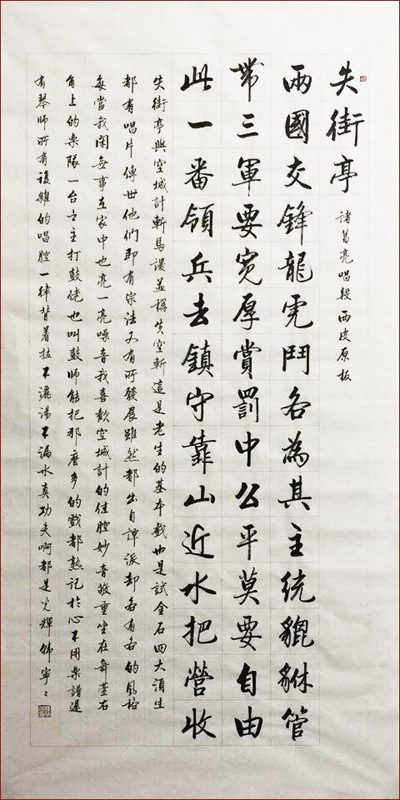 失街亭 諸葛亮唱段西皮原板
兩國交鋒龍虎鬥各為其主統貔貅管
帶三軍要寬厚賞罰中公平莫要自由
此一番領兵去鎮守靠山近水把營收
失街亭與空城計斬馬謖並稱失空斬這是老生的基本戲也是試金石四大須生
都有唱片傳世他們即有宗法又有所發展雖然都出自譚派却各有各的風格
每當我閑無事在家中也亮一亮嗓音我喜歡空城計的佳腔妙音敬重坐在舞臺右
角上的樂隊一台之主打鼓佬也叫鼓師能把那麼多的戲都熟記於心不用樂譜還
有琴師所有複雜的唱腔一律背着拉不灑湯不漏水真功夫啊都是光輝